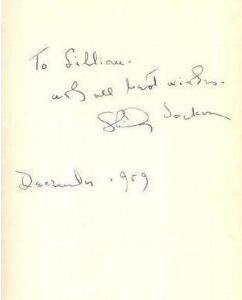 To Lillian.
with all best wishes.
Shirley Jackson
December 1959